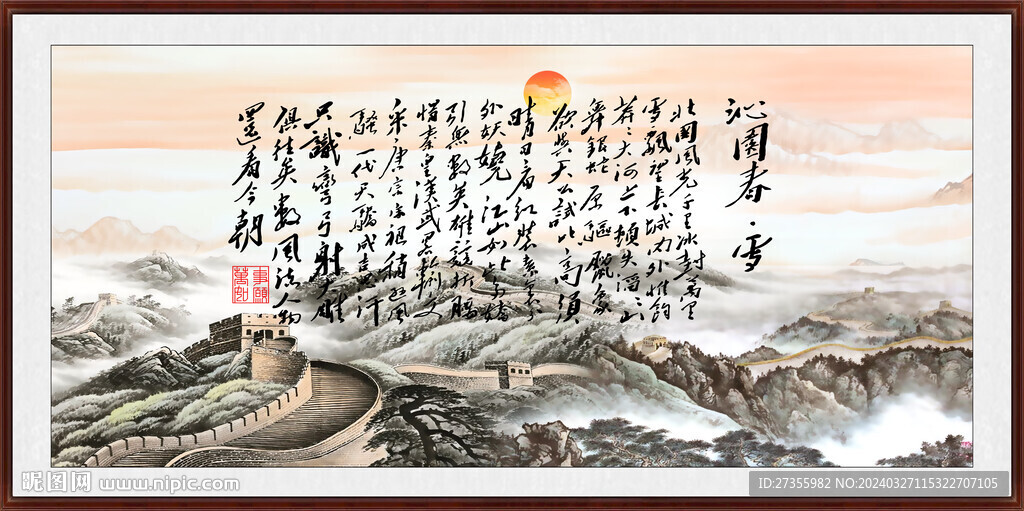 沁园春·雪
北国风光千里冰封万里
雪飘望长城内外惟馀
莽〻大河上下顿失滔〻山
舞银蛇原驱腊象
欲与天公试比高须
晴日看红装素裹分
外妖娆江山如此多娇
引无数英雄竞折腰
惜秦皇汉武略输文
采唐宗宋祖稍逊风
骚一代天骄成吉思汗
只識弯弓射大雕
俱往矣数风流人物
還看今朝
昵图网 www.nipic.com
ID:27355982 NO:20240327115322707105